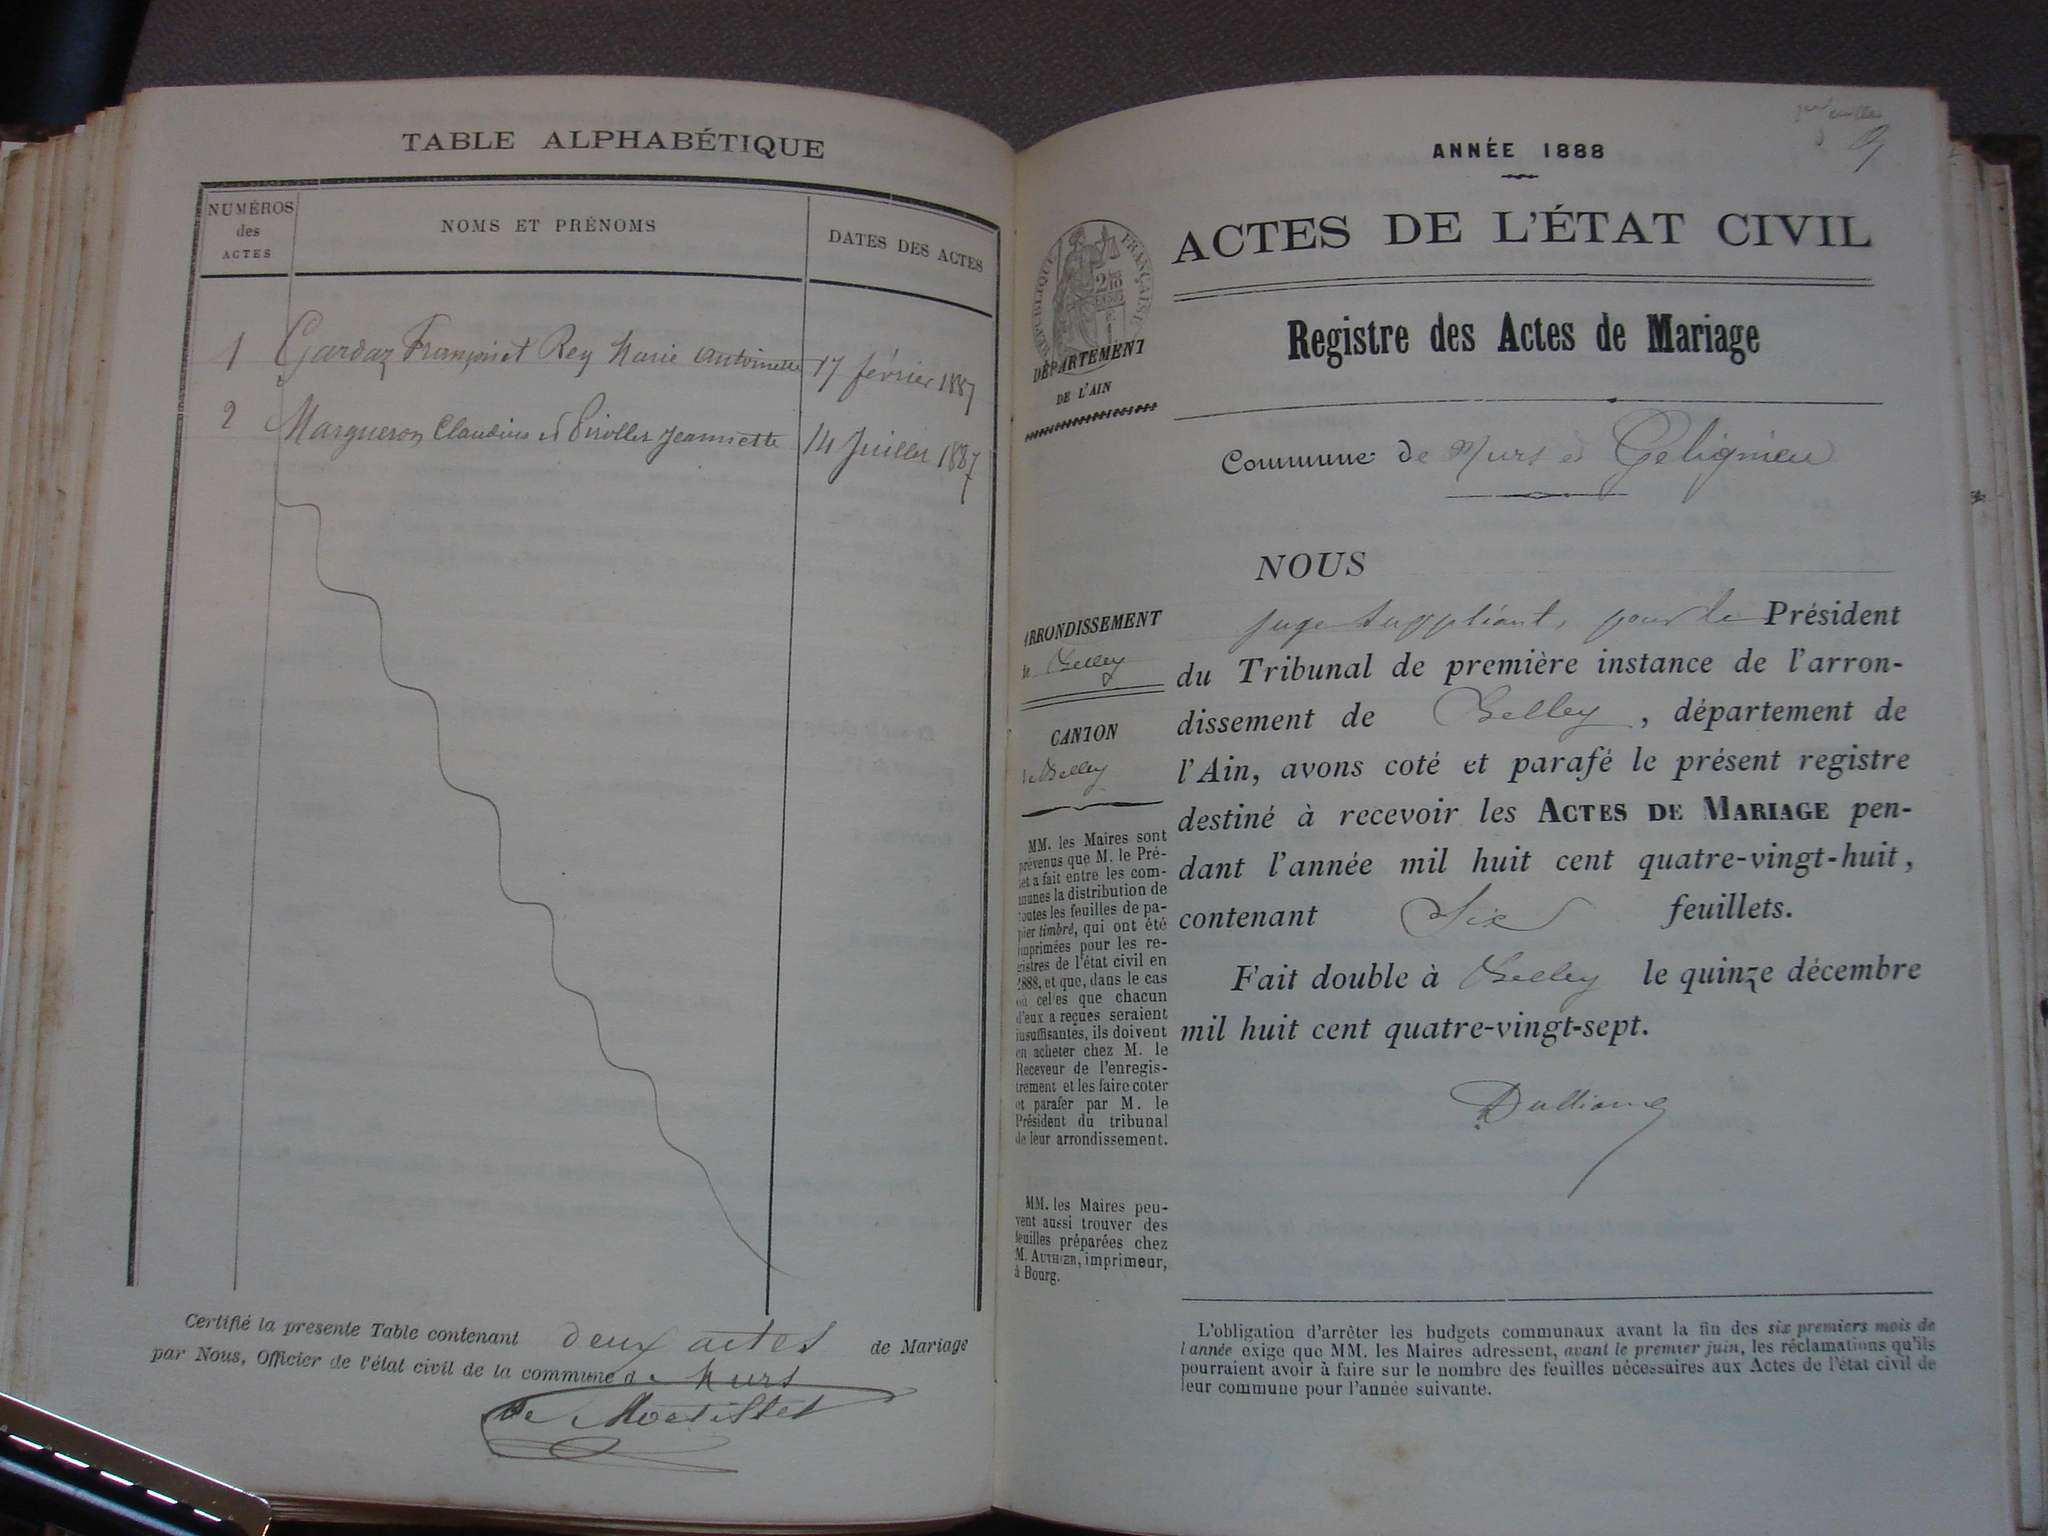 TABLE ALPHABÉTIQUE
NUMÉROS
des
ACTES
NOMS ET PRÉNOMS
DATES DES ACTES
1 Gardaz François et Rey Marie Antoinette 17 février 1887
2 Margueron Claudius et Jeannette 14 Juillet 1887
Certifié la présente Table contenant deux actes de Mariage
par Nous, Officier de l'état civil de la commune de Murs
de Mortillet
ANNÉE 1888
ACTES DE L'ÉTAT CIVIL
RÉPUBLIQUE FRANÇAISE
DÉPARTEMENT
DE L'AIN
Registre des Actes de Mariage
Commune de Murs et Gelignieu
NOUS
juge suppléant, pour le Président
du Tribunal de première instance de l'arron-
dissement de Belley, département de
l'Ain, avons coté et parafé le présent registre
destiné à recevoir les ACTES DE MARIAGE pen-
dant l'année mil huit cent quatre-vingt-huit,
contenant Six feuillets.
Fait double à Belley le quinze décembre
mil huit cent quatre-vingt-sept.
ARRONDISSEMENT
de Belley
CANTON
de Belley
MM. les Maires sont
prévenus que M. le Pré-
fet a fait entre les com-
munes la distribution de
toutes les feuilles de pa-
pier timbré, qui ont été
imprimées pour les re-
gistres de l'état civil en
1888, et que, dans le cas
où celles que chacun
d'eux a reçues seraient
insuffisantes, ils doivent
en acheter chez M. le
Receveur de l'enregis-
trement et les faire coter
et parafer par M. le
Président du tribunal
de leur arrondissement.
MM. les Maires peu-
vent aussi trouver des
feuilles préparées chez
M. AUTHIER, imprimeur,
à Bourg.
L'obligation d'arrêter les budgets communaux avant la fin des six premiers mois de
l'année exige que MM. les Maires adressent, avant le premier juin, les réclamations qu'ils
pourraient avoir à faire sur le nombre des feuilles nécessaires aux Actes de l'état civil de
leur commune pour l'année suivante.